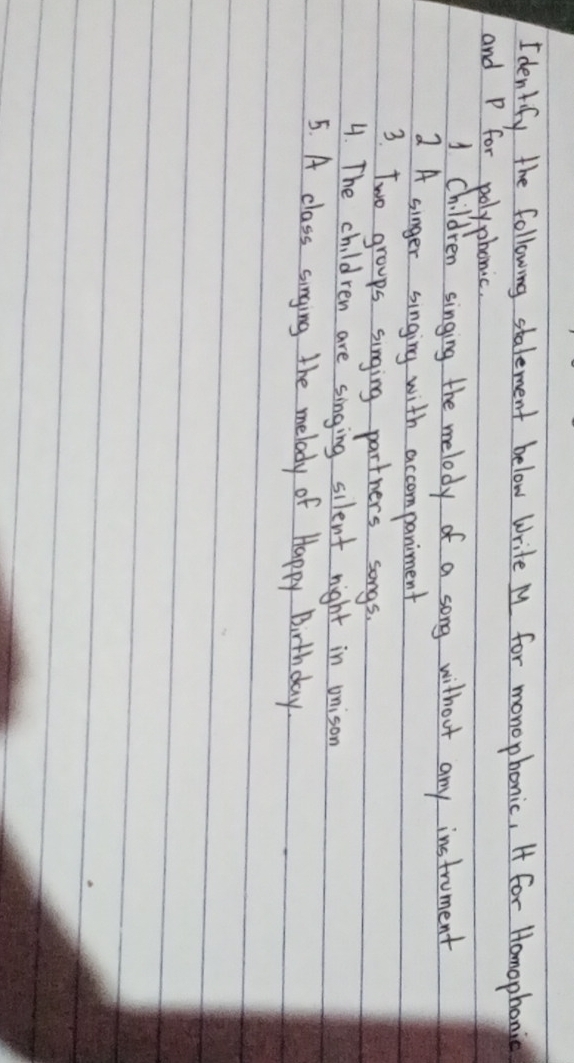 Identify the following statement below Write M for monophonic, H for Homophonic
and P for polyphonic.
1 Children singing the melody of a song without any instrument
2 A singer singing with accompaniment
3. Two groups singing partners songs.
4. The children are singing silent night in unison
5. A class singing the melody of Happy Birthday.